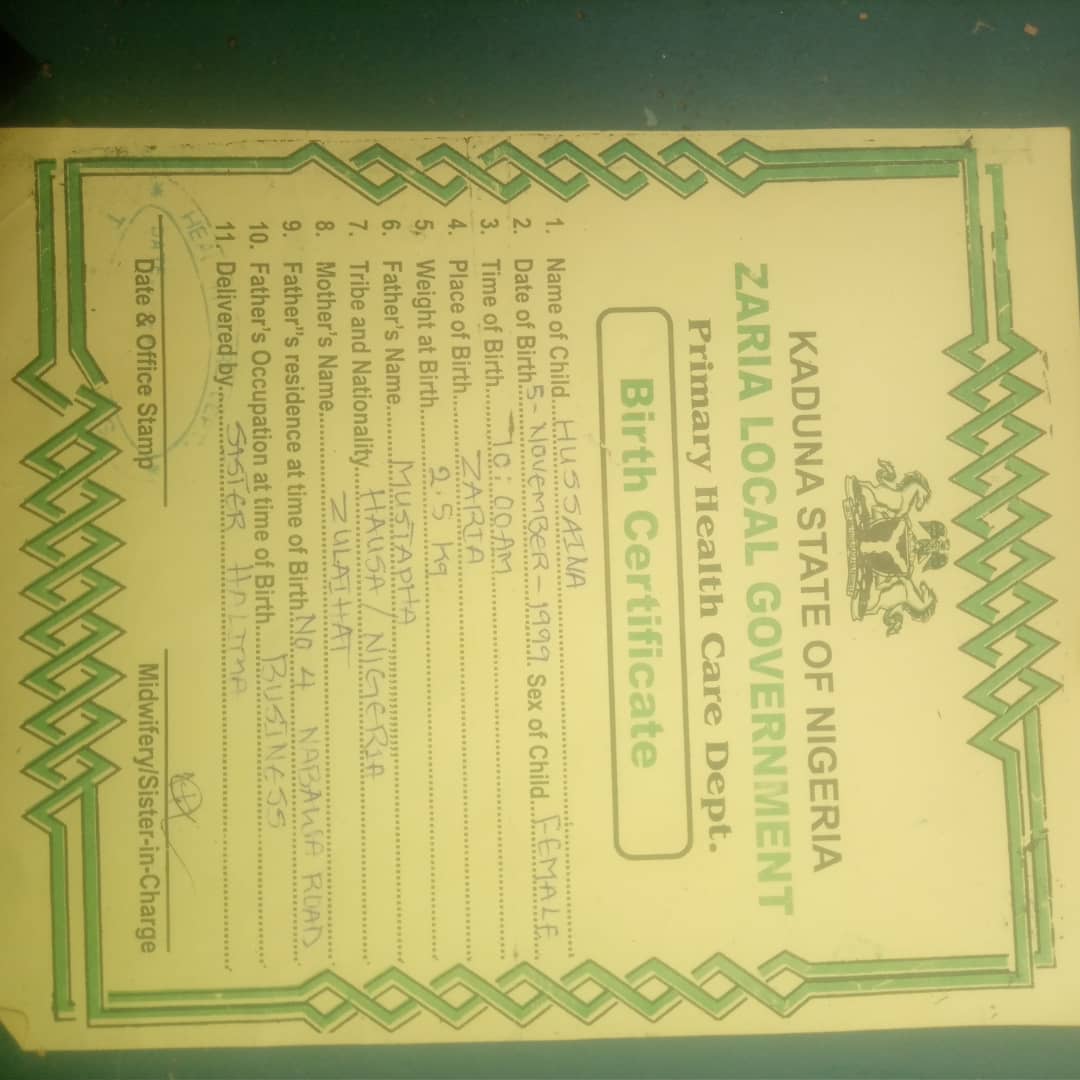 KADUNA STATE OF NIGERIA
ZARIA LOCAL GOVERNMENT
Primary Health Care Dept.
Birth Certificate
1. Name of Child....HUSSAINA
2. Date of Birth..5-NOVEMBER-1999. Sex of Child...FEMALE
3. Time of Birth......10:00AM
4. Place of Birth......ZARIA
5. Weight at Birth......2.5 kg
6. Father's Name......MUSTAPHA
7. Tribe and Nationality....HAUSA/NIGERIA
8. Mother's Name......ZULAIHAT
9. Father"s residence at time of Birth.NO 4 NABAWA ROAD
10. Father's Occupation at time of Birth....BUSINESS
11. Delivered by......SASTER HALIMA
Date & Office Stamp
Midwifery/Sister-in-Charge